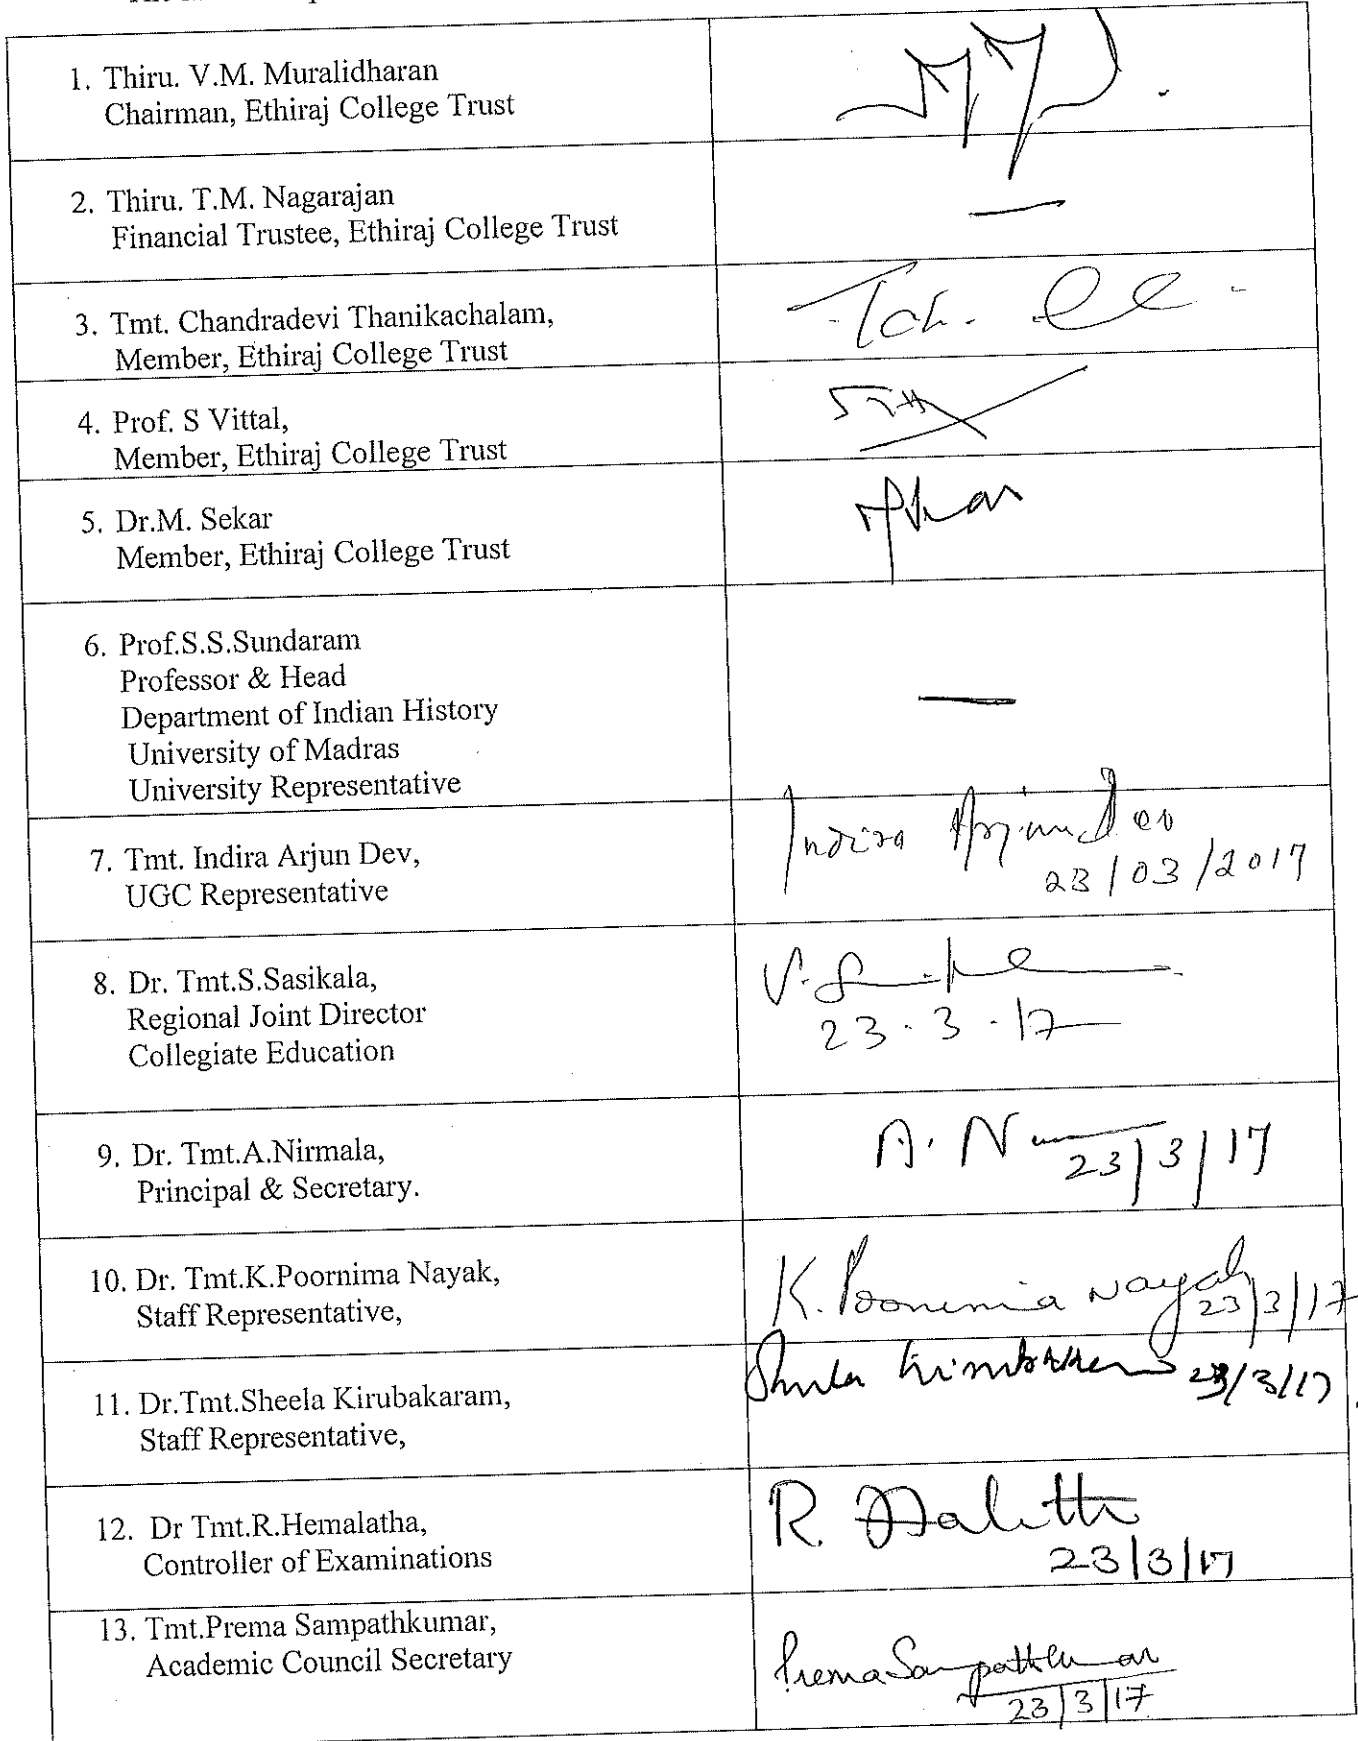 1. Thiru. V.M. Muralidharan
Chairman, Ethiraj College Trust
2. Thiru. T.M. Nagarajan
Financial Trustee, Ethiraj College Trust
—
3. Tmt. Chandradevi Thanikachalam,
Member, Ethiraj College Trust
4. Prof. S Vittal,
Member, Ethiraj College Trust
5. Dr.M. Sekar
Member, Ethiraj College Trust
6. Prof.S.S.Sundaram
Professor & Head
Department of Indian History
University of Madras
University Representative
—
7. Tmt. Indira Arjun Dev,
UGC Representative
Indira Arjun Dev
23/03/2017
8. Dr. Tmt.S.Sasikala,
Regional Joint Director
Collegiate Education
23.3.17
9. Dr. Tmt.A.Nirmala,
Principal & Secretary.
A. N
23/3/17
10. Dr. Tmt.K.Poornima Nayak,
Staff Representative,
K. Poornima Nayak
23/3/17
11. Dr.Tmt.Sheela Kirubakaram,
Staff Representative,
23/3/17
12. Dr Tmt.R.Hemalatha,
Controller of Examinations
R.
23/3/17
13. Tmt.Prema Sampathkumar,
Academic Council Secretary
Prema Sampathkumar
23/3/17